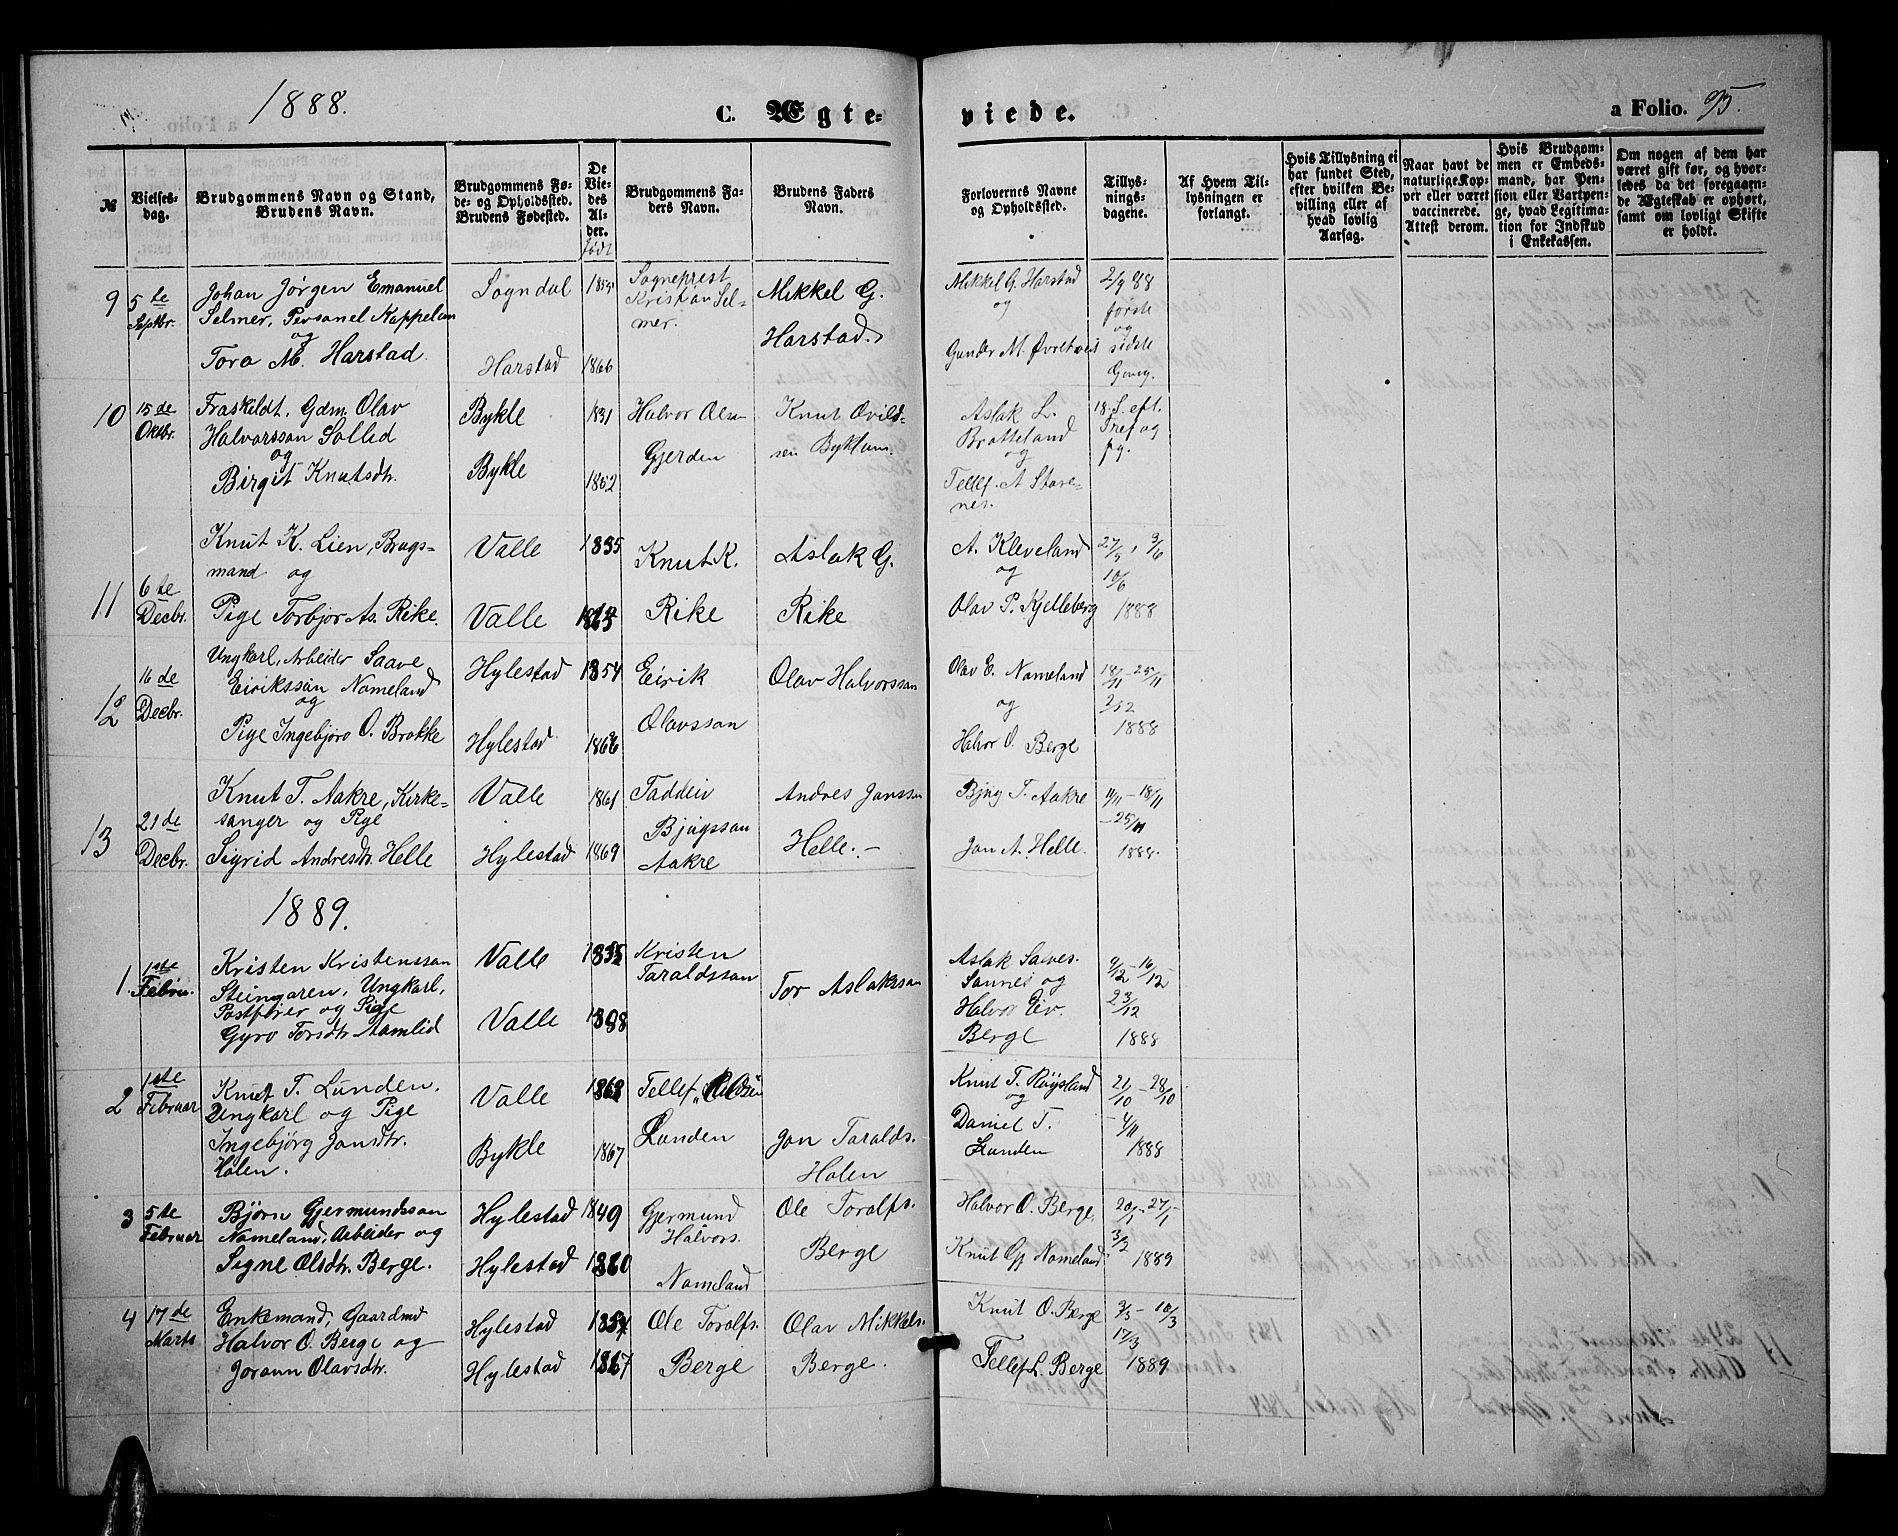 1888.
C. Ægte-
viede.
a Folio. 95.
№
Vielses-
dag.
Brudgommens Navn og Stand,
Brudens Navn.
Brudgommens Fø-
de- og Opholdsted.
Brudens Fødested.
De
Vie-
des
Al-
der.
født
Brudgommens Fa-
ders Navn.
Brudens Faders
Navn.
Forlovernes Navne
og Opholdsted.
Tillys-
nings-
dagene.
Af Hvem Til-
lysningen er
forlangt.
Hvis Tillysning ei
har fundet Sted,
efter hvilken Be-
villing eller af
hvad lovlig
Aarsag.
Naar havt de
naturlige Kop-
per eller været
vaccinerede.
Attest derom.
Hvis Brudgom-
men er Embeds-
mand, har Pen-
sion eller Vartpen-
ge, hvad Legitima-
tion for Indskud
i Enkekassen.
Om nogen af dem har
været gift før, og hvor-
ledes da det foregaaen-
de Ægteskab er ophørt,
samt om lovligt Skifte
er holdt.
9
5te
Septbr.
Johan Jørgen Emanuel
Selmer, Personel Kappelan
og
Tora M. Harstad.
Sogndal
Harstad
1866
Sogneprest
Kristian Sel-
mer.
Mikkel G.
Harstad.
Mikkel G. Harstad
og
Gunder M. Øvreтveit
2/9 88
første
og
sidste
Gang.
10
15de
Oktbr.
Fraskildt. Gdm. Olav
Halvorssan Sollid
og
Birgit Knutsdtr.
Bykle
Bykle
1831
1852
Halvor Olsen
Gjerden
Knut Ovild-
sen Byklum.
Aslak L.
Bratteland
og
Tellef. A Stave-
nes.
18. S. eft.
Tref og
fg.
11
6te
Decbr.
Knut K. Lien, Brugs-
mand og
Pige Torbjør As. Rike.
Valle
Valle
1835
Knut K.
Rike
Aslak G.
Rike
A. Kleveland
og
Olav P. Kjelleberg
27/5, 3/6
10/6
1888
12
16de
Decbr.
Ungkarl, Arbeider Saave
Eirikssan Nomeland
og
Pige Ingebjøro O. Brokke
Hylestad
Hylestad
1854
1866
Eirik
Olavssan
Olav Halvorssan
Olav E. Nomeland
og
Halvor O. Berge
18/11 - 25/11
2/12
1888
13
21de
Decbr.
Knut T. Aakre, Kirke-
sanger og Pige
Sigrid Andresdtr. Helle
Valle
Hylestad
1861
1869
Taddeiv
Bjugssan
Aakre
Andres Janssen
Helle. -
Bjug T. Aakre
Jon A. Helle.
11/11 - 18/11
- 25/11
1888.
1889.
1
1ste
Febru.
Kristen Kristenssan
Steingaren, Ungkarl,
Postfører og Pige
Gyro Torsdtr. Aamlid
Valle
Valle
Kristen
Taraldssan
Tor Aslakssan
Aslak Salves.
Sannes og
Halvor Eiv.
Berge
9/12 - 16/12
23/12
1888
2
1ste
Februar
Knut T. Lunden,
Ungkarl og Pige
Ingebjørg Jonsdtr.
Holen.
Valle
Bykle
1867
Tellef
Lunden
Jon Taralds.
Holen
Knut T. Røysland
og
Daniel T.
Lunden
21/10 - 28/10
- 4/11
1888
3
5te
Februar
Bjørn Gjermundssan
Nomeland, Arbeider og
Signe Olsdtr. Berge.
Hylestad
Hylestad
1849
1860
Gjermund
Halvors.
Nomeland
Ole Toralfs.
Berge
Halvor O. Berge,
Knut Gj Nomeland
20/1 - 27/1 -
3/2
1889
4
17de
Marts
Enkemand, Gaardmd
Halvor O. Berge og
Jorann Olavsdtr.
Hylestad
Hylestad
1867
Ole Toralfs.
Berge
Olav Mikkels.
Berge.
Knut O. Berge
Tellef L. Berge
3/3 - 10/3
17/3
1889